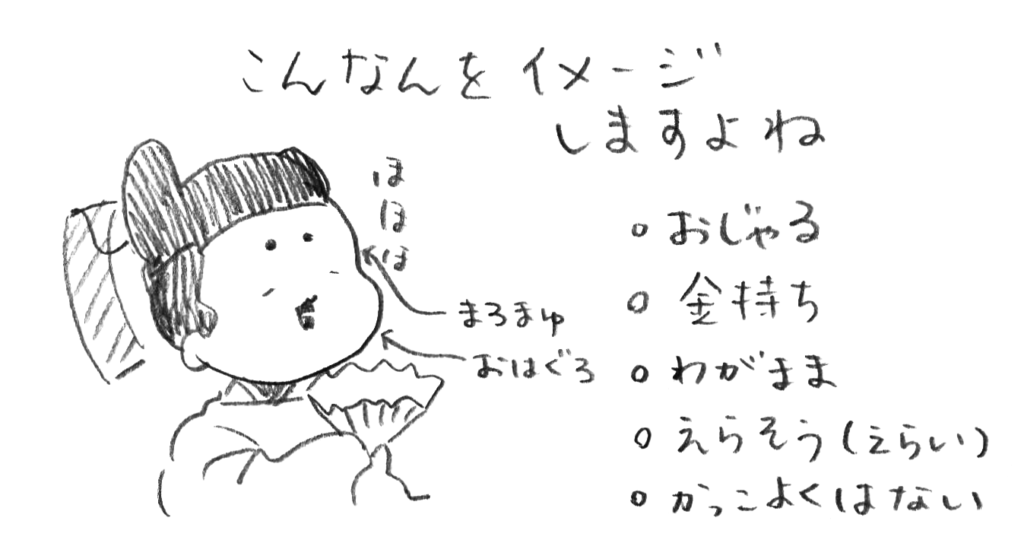 こんなんをイメージ
しますよね
ほほほ
まろまゆ
おはぐろ
○ おじゃる
○ 金持ち
○ わがまま
○ えらそう(えらい)
○ かっこよくはない